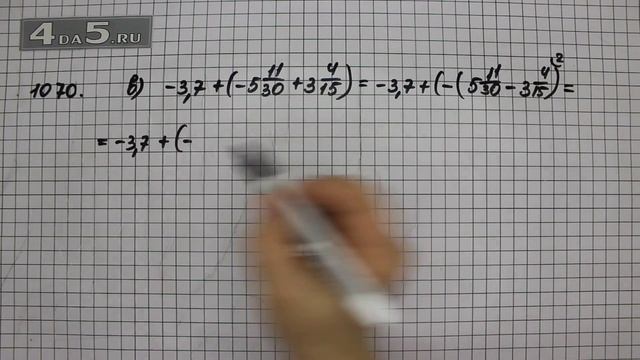 4ДА5.RU
1070. в) -3,7 + (-5 11/30 + 3 4/15) = -3,7 + (-(5 11/30 - 3 4/15)² =
= -3,7 + (-